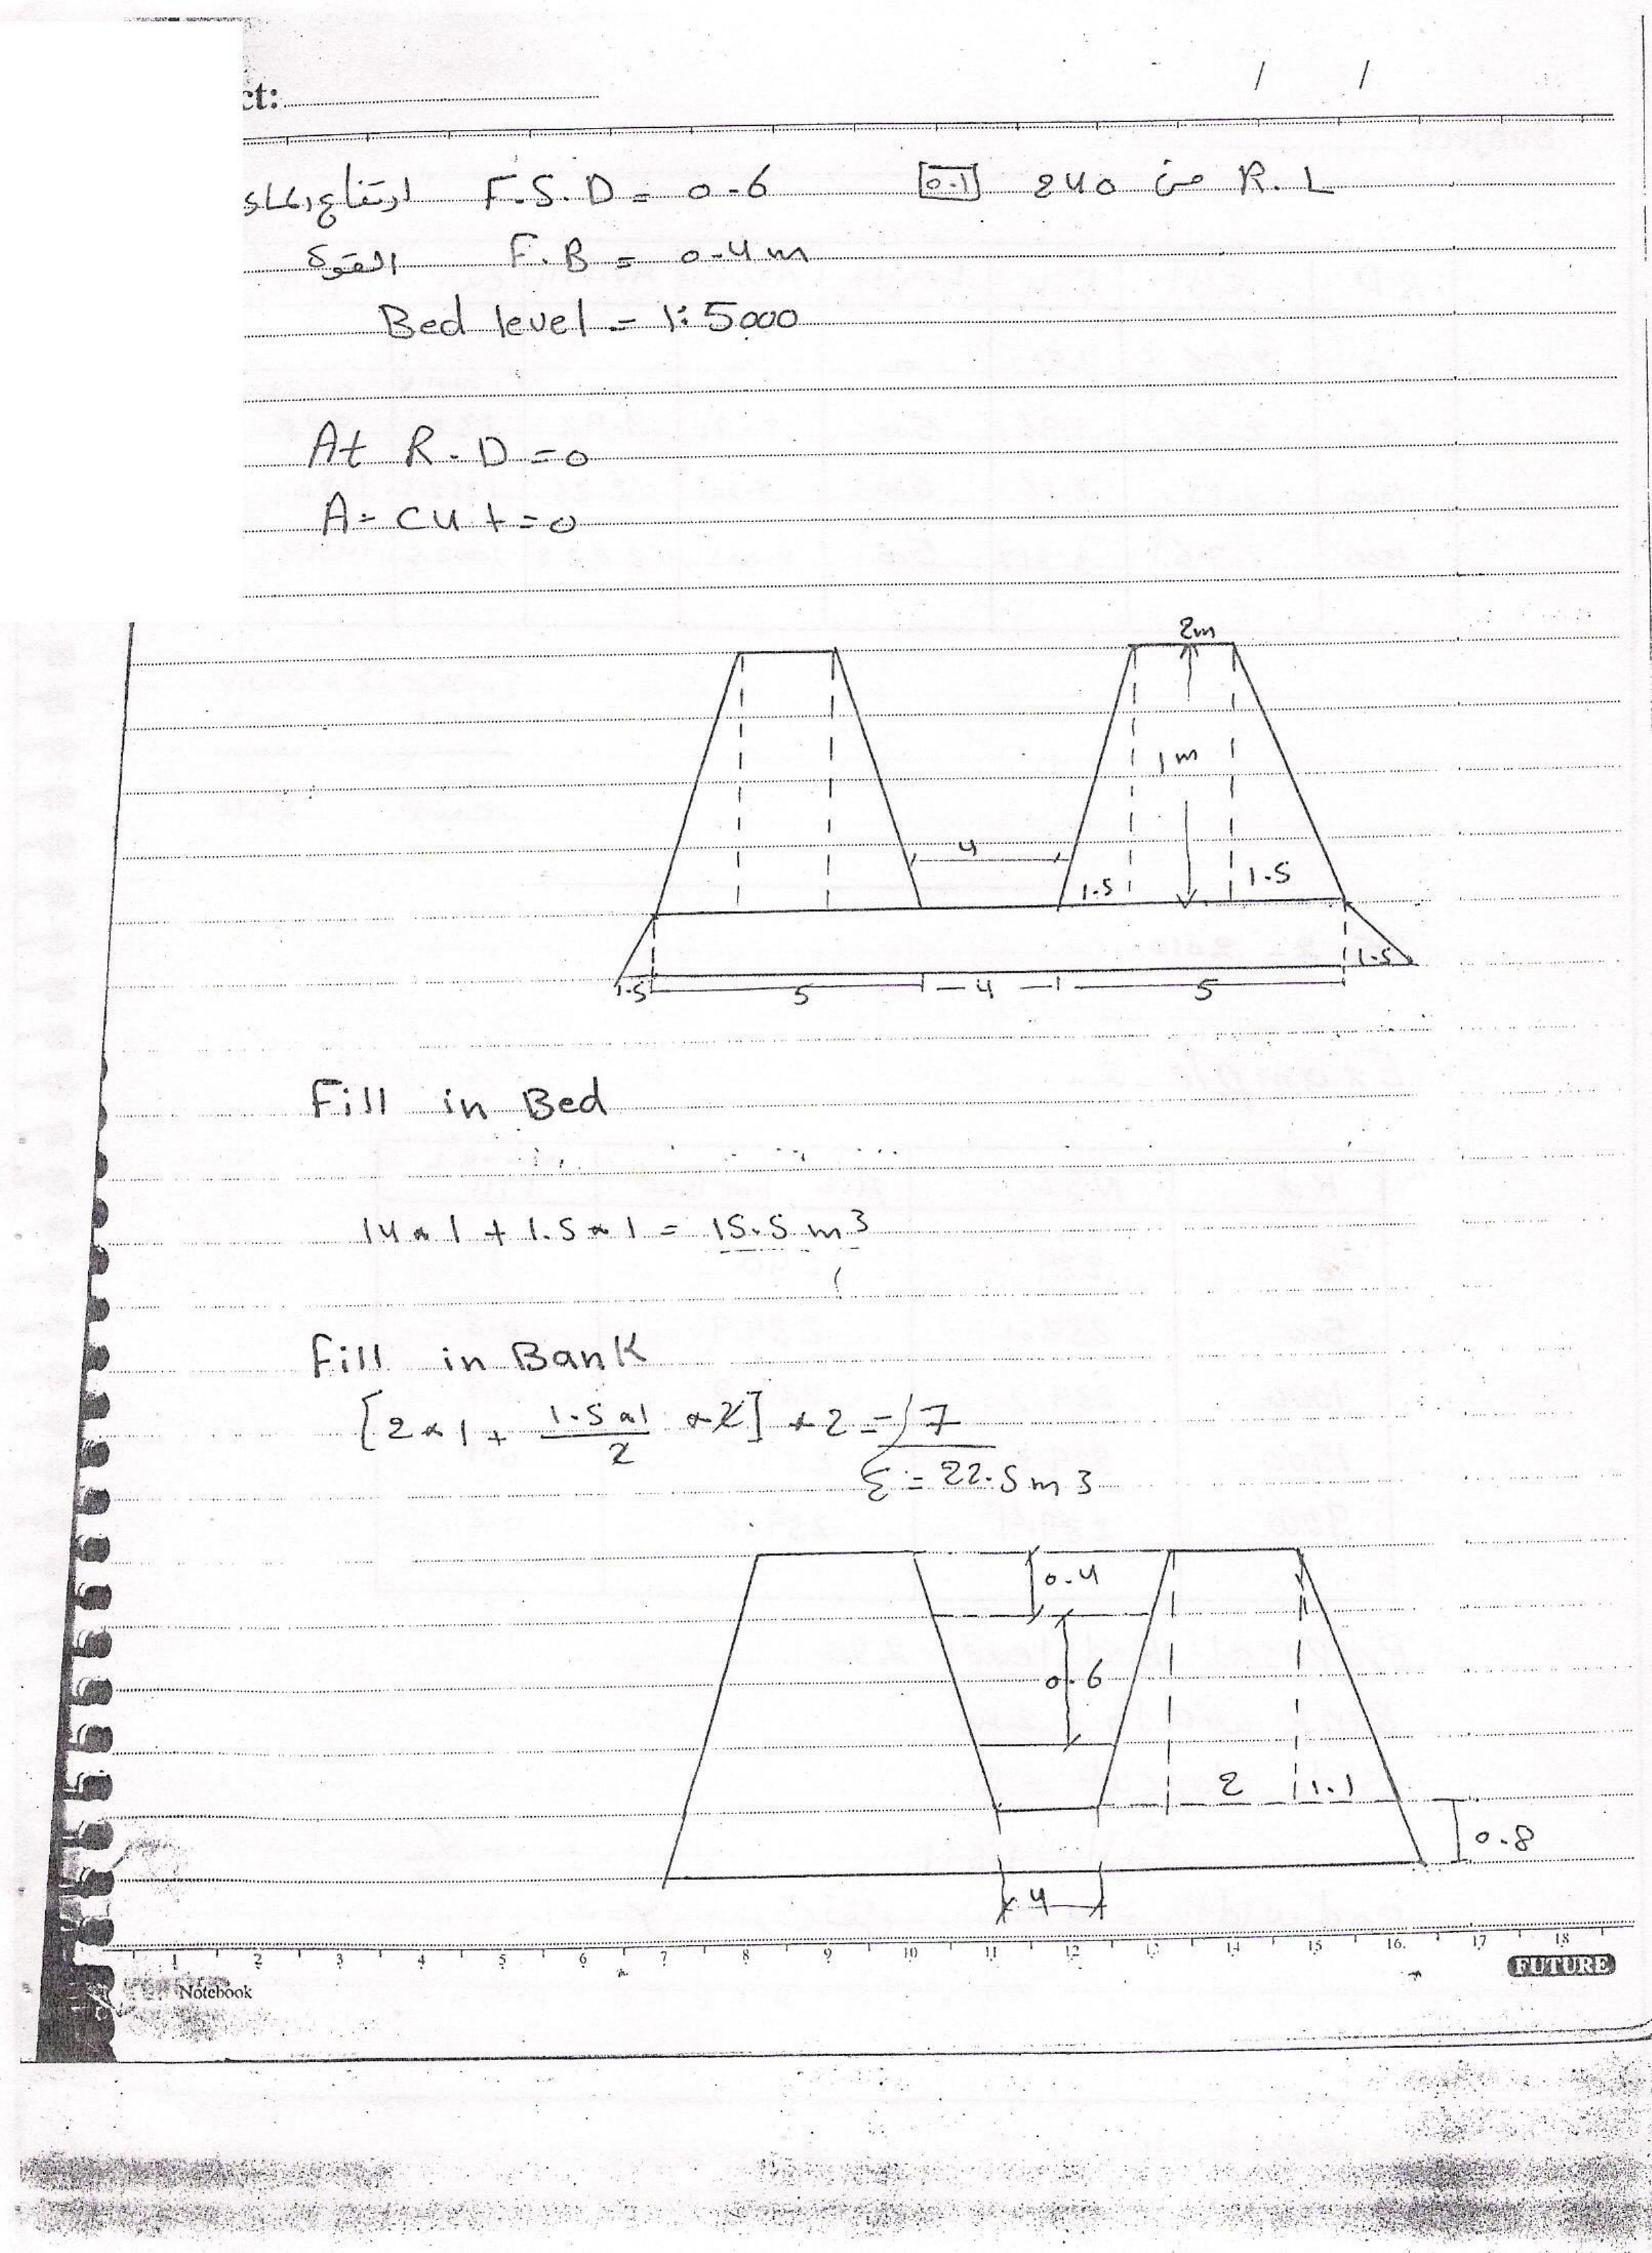 ct:
/ /
ارتفاع الماء F.S.D = 0.6 [0.1] 240 من R.L
F.B = 0.4 m
Bed level = 1:5000
At R.D = 0
A = cut = 0
2m
1m
4
1.5 1.5
1.5
1.5 5 4 5
Fill in Bed
14 * 1 + 1.5 * 1 = 15.5 m3
Fill in Bank
[2 * 1 + 1.5 * 1 / 2 * 2] * 2 = 7
Σ = 22.5 m3
0.4
0.6
2 1.1
0.8
4
1 2 3 4 5 6 7 8 9 10 11 12 13 14 15 16 17 18
FUTURE
Notebook